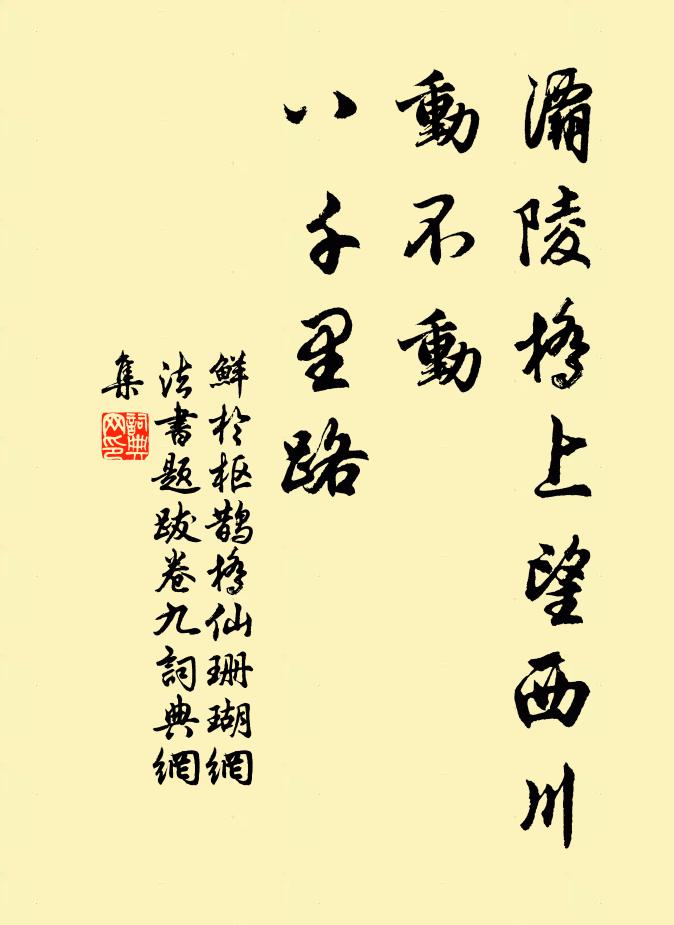 灞陵橋上望西川
動不動
八千里路
鮮於枢鵲橋仙珊瑚網
法書題跋卷九詞典網
集
詞典
网印